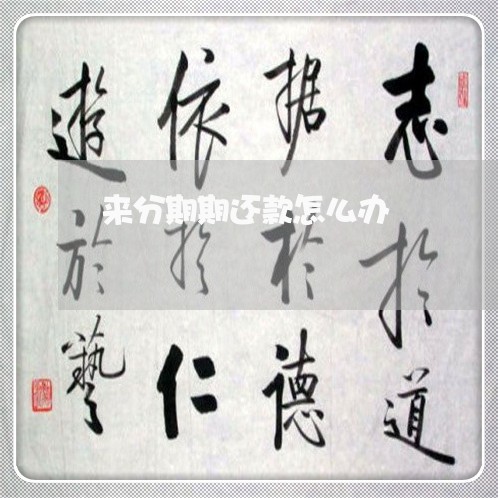 志於道
据於德
依於仁
遊於藝
来分期期还款怎么办